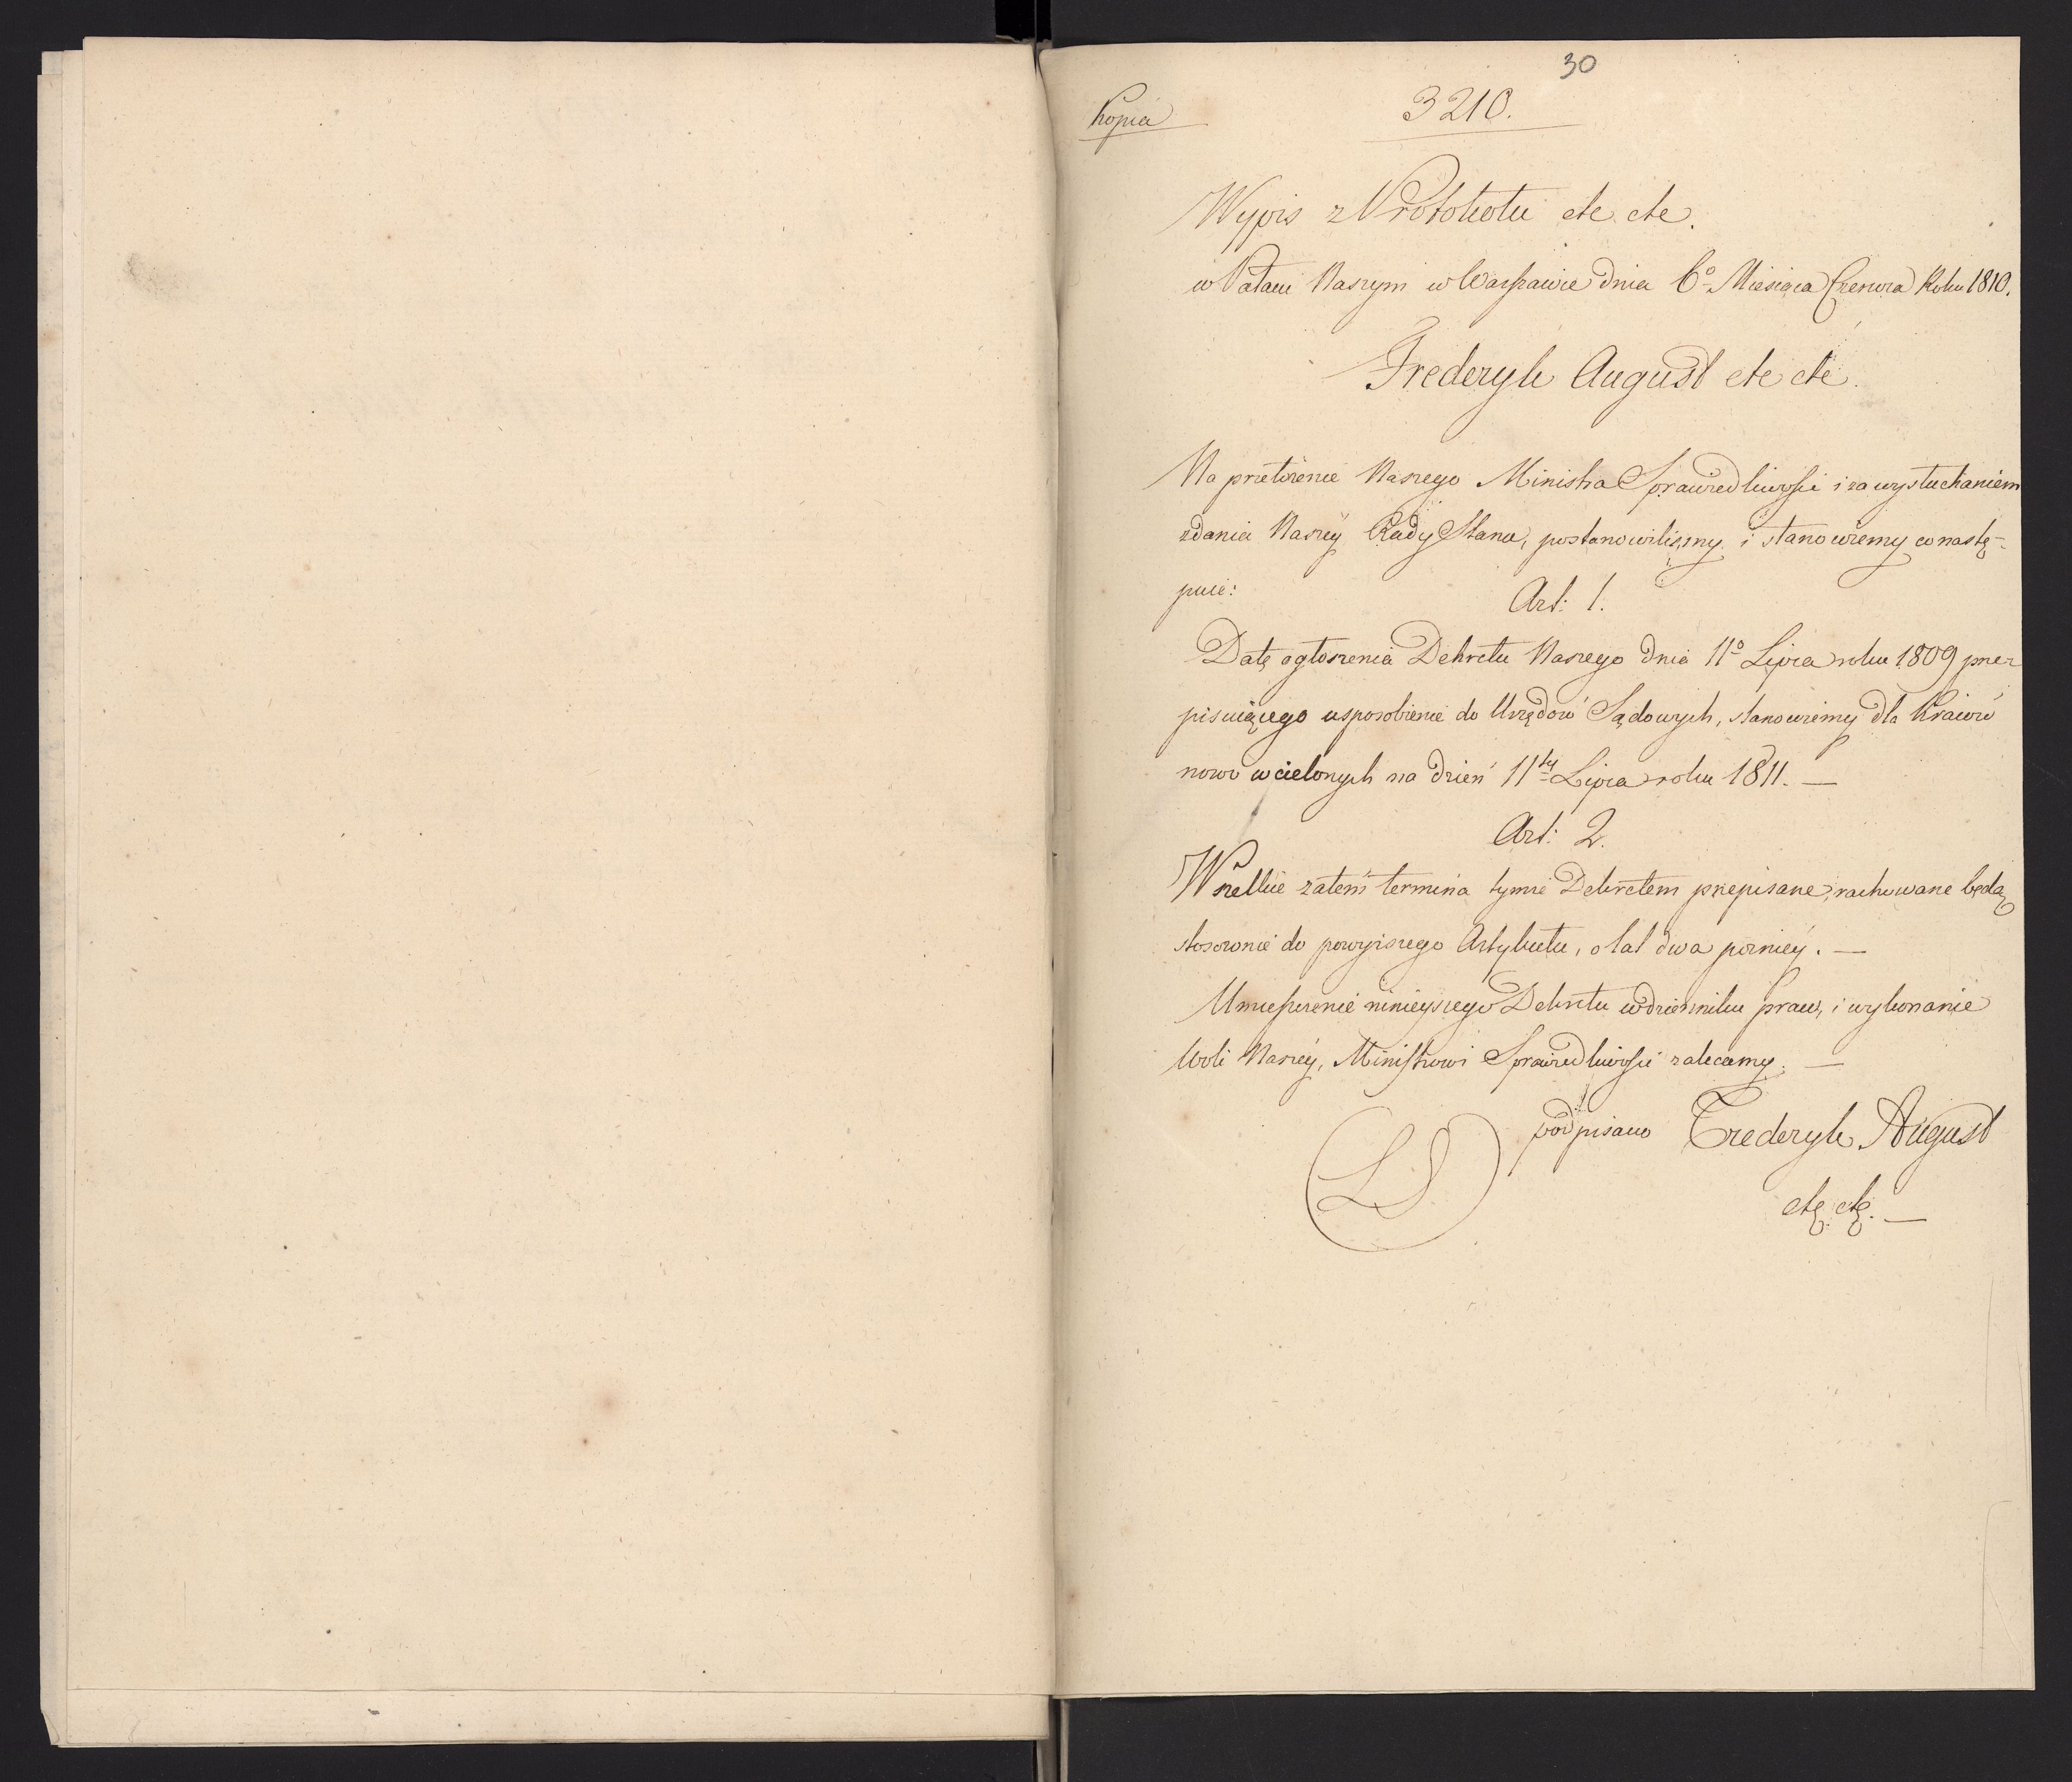 30
Kopia
3210.
Wypis z Protokołu etc etc.
w Pałacu Naszym w Warszawie dnia 6º Miesiąca Czerwca Roku 1810.
Frederyk August etc etc.
Na przełożenie Naszego Ministra Sprawiedliwości i za wysłuchaniem
zdania Naszey Rady Stanu, postanowiliśmy i stanowiemy co nastę-
puie:
Art: 1.
Datę ogłoszenia Dekretu Naszego dnia 11º Lipca roku 1809 prze-
pisuiącego usposobienie do Urzędów Sądowych, stanowiemy dla Kraiów
nowo wcielonych na dzień 11ty Lipca roku 1811. —
Art: 2.
Wszelkie zatem termina tymże Dekretem przepisane, rachowane będą
stosownie do powyższego Artykułu, o lat dwa pózniey. —
Umieszczenie ninieyszego Dekretu w dzienniku praw, i wykonanie
Woli Naszey, Ministrowi Sprawiedliwości zalecamy. —
podpisano Frederyk August
LS
etc. etc. —